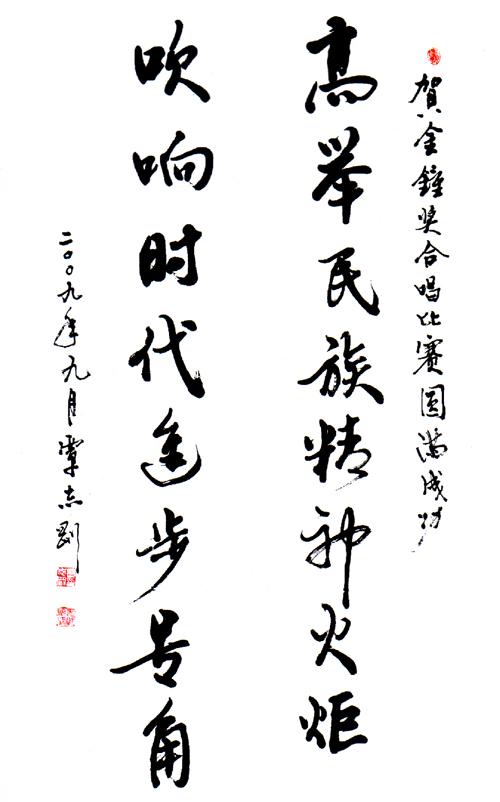 贺金钟奖合唱比赛圆满成功
高举民族精神火炬
吹响时代进步号角
二〇〇九年九月覃志刚